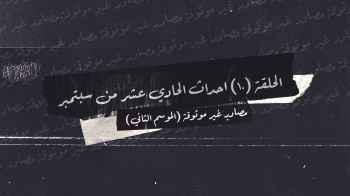 الحلقة (١٠) احداث الحادي عشر من سبتمبر
مصادر غير موثوقة (الموسم الثاني)